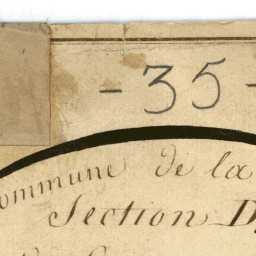 - 35 -
Commune de la
Section D